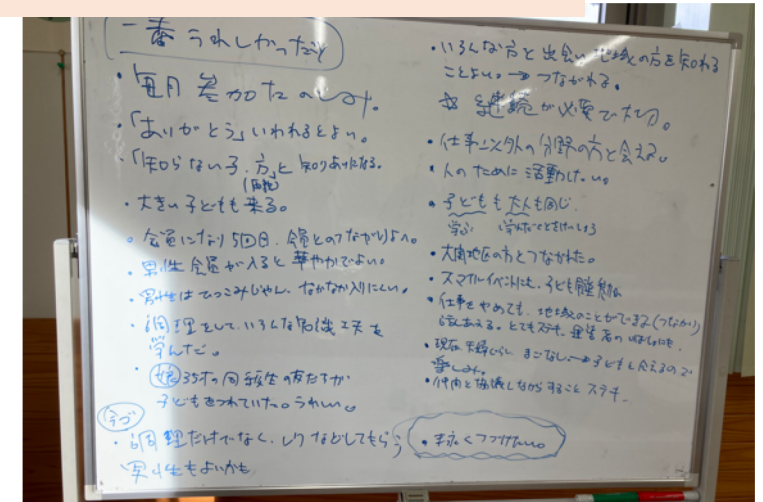 一番うれしかったこと
・毎月参加たのしみ。
・「ありがとう」いわれるとよい。
・「知らない子、方」と知りあいになる。
・大きい子どもも来る。
・会員になり5回目、会員とのつながりよい。
・男性会員が入ると華やかでよい。
・男性はひっこみじゃん、なかなか入りにくい。
・調理をして、いろんな知識工夫を
学んだ。
・娘35才の同級生の友だちが
子どもをつれていた。うれしい。
今づ
・調理だけでなく、などしてもらう
男性もよいかも
・いろんな方と出会い地域の方を知れる
ことよい→つながれる。
☆継続が必要で大切。
・仕事以外の分野の方と会える。
・人のために活動したい。
・子どもも大人も同じ
学ぶ
・地区の方とつながれた。
・スマイルイベントにも、子ども
・仕事をやめても、地域のことができる(つながり)
とてもステキ。運営者の
・現在夫婦ぐらし、まごなし→子どもと会えるので
楽しみ。
・仲間と協議しながらすること ステキ
・末永くつづけたい。